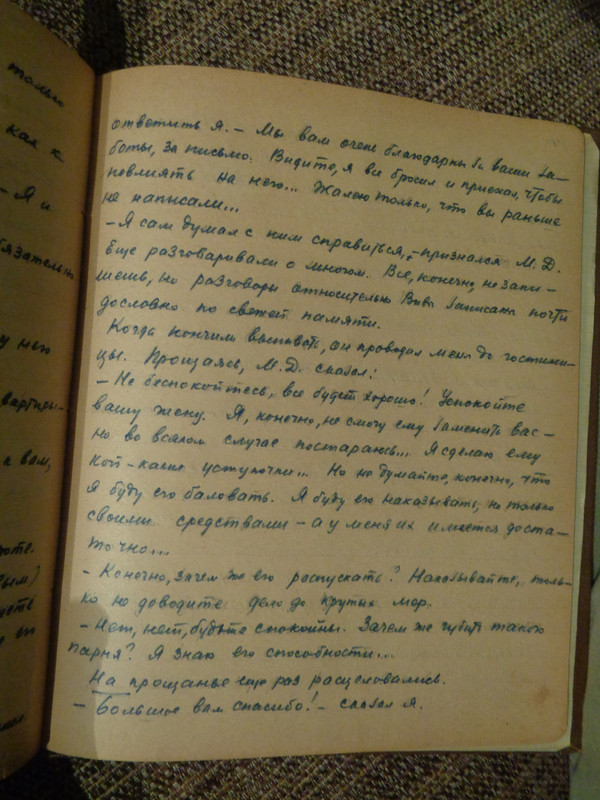 только
как к
- Я и
бязательно
у него
квартиры-
к вам,
ответить я. – Мы вам очень благодарны за ваши за-
боты, за письмо. Видите, я все бросил и приехал, чтобы
повлиять на него... Жалею только, что вы раньше
не написали...
– Я сам думал с ним справиться, – признался М. Д.
Еще разговаривали о многом. Все, конечно, не запи-
шешь, но разговоры относительно Вивы записаны почти
дословно по свежей памяти.
Когда кончили выпивать, он проводил меня до гостини-
цы. Прощаясь, М. Д. сказал:
– Не беспокойтесь, все будет хорошо! Успокойте
вашу жену. Я, конечно, не смогу ему заменить вас –
но во всяком случае постараюсь... Я сделаю ему
кой-какие уступочки... Но не думайте, конечно, что
я буду его баловать. Я буду его наказывать, но только
своими средствами – а у меня их имеется доста-
точно...
– Конечно, зачем же его распускать? Наказывайте, толь-
ко не доводите дело до крутых мер.
– Нет, нет, будьте спокойны. Зачем же губить такого
парня? Я знаю его способности...
На прощанье еще раз расцеловались.
– Большое вам спасибо! – сказал я.